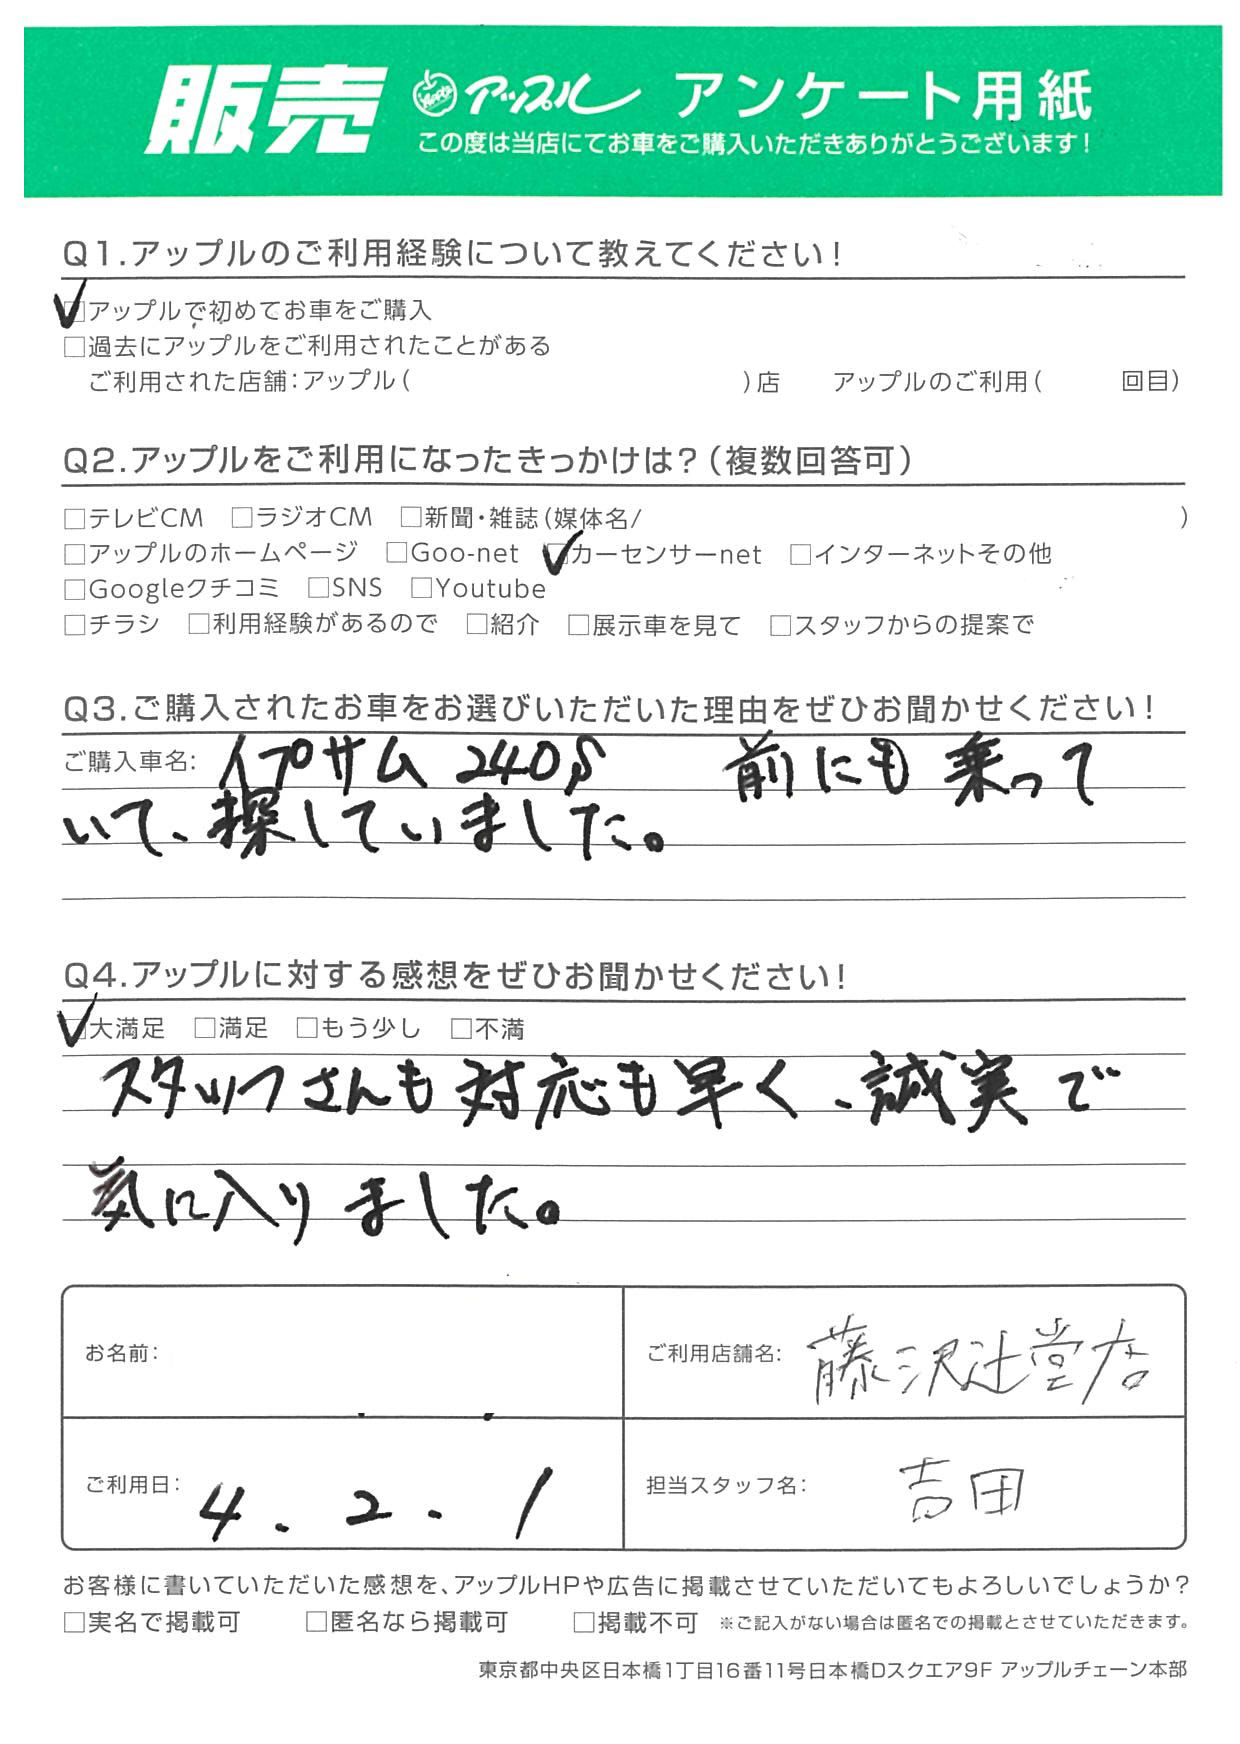 販売 Apple アップル アンケート用紙
この度は当店にてお車をご購入いただきありがとうございます!
Q1.アップルのご利用経験について教えてください!
☑アップルで初めてお車をご購入
□過去にアップルをご利用されたことがある
ご利用された店舗:アップル( )店 アップルのご利用( 回目)
Q2.アップルをご利用になったきっかけは?(複数回答可)
□テレビCM □ラジオCM □新聞・雑誌(媒体名/ )
□アップルのホームページ □Goo-net ☑カーセンサーnet □インターネットその他
□Googleクチコミ □SNS □Youtube
□チラシ □利用経験があるので □紹介 □展示車を見て □スタッフからの提案で
Q3.ご購入されたお車をお選びいただいた理由をぜひお聞かせください!
ご購入車名: イプサム 240S 前にも乗って
いて、探していました。
Q4.アップルに対する感想をぜひお聞かせください!
☑大満足 □満足 □もう少し □不満
スタッフさんも対応も早く、誠実で
気に入りました。
お名前:
ご利用店舗名: 藤沢辻堂店
ご利用日: 4.2.1
担当スタッフ名: 吉田
お客様に書いていただいた感想を、アップルHPや広告に掲載させていただいてもよろしいでしょうか?
□実名で掲載可 □匿名なら掲載可 □掲載不可 ※ご記入がない場合は匿名での掲載とさせていただきます。
東京都中央区日本橋1丁目16番11号日本橋Dスクエア9F アップルチェーン本部